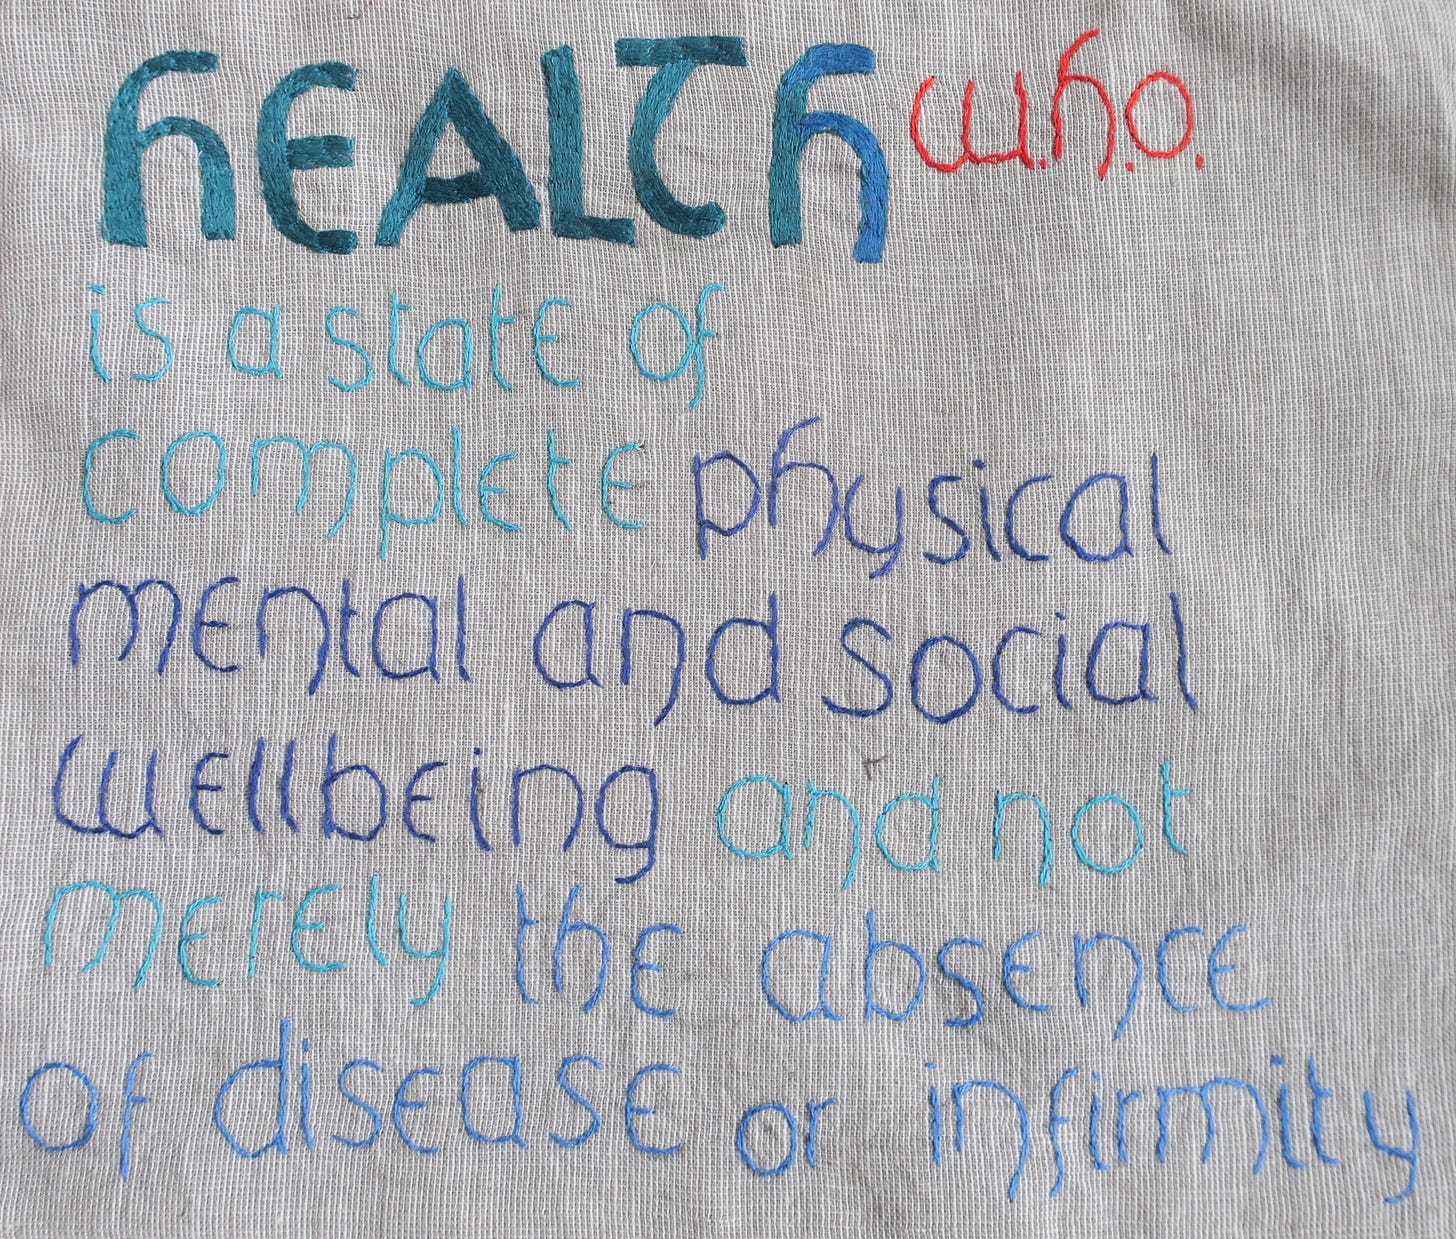 HEALTH w.h.o.
is a state of
complete physical
mental and social
wellbeing and not
merely the absence
of disease or infirmity